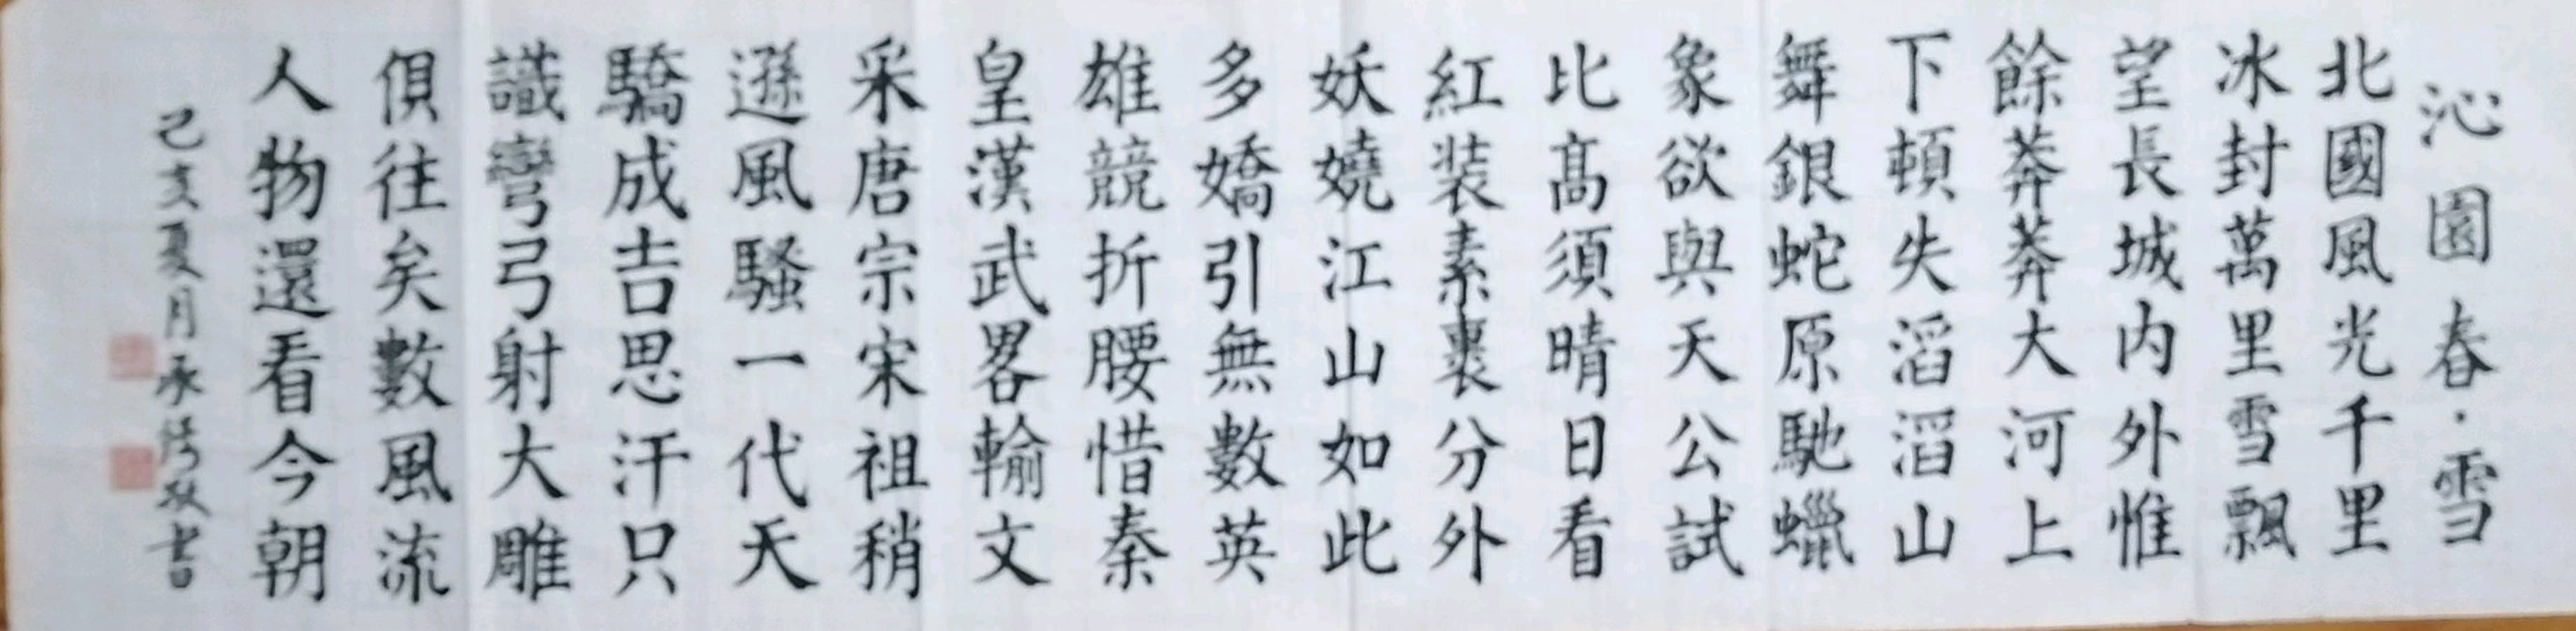 沁園春·雪
北國風光千里
冰封萬里雪飄
望長城内外惟
餘莽莽大河上
下頓失滔滔山
舞銀蛇原馳蠟
象欲與天公試
比高須晴日看
紅装素裹分外
妖嬈江山如此
多嬌引無數英
雄競折腰惜秦
皇漢武畧輸文
采唐宗宋祖稍
遜風騷一代天
驕成吉思汗只
識彎弓射大雕
俱往矣數風流
人物還看今朝
己亥夏月承書